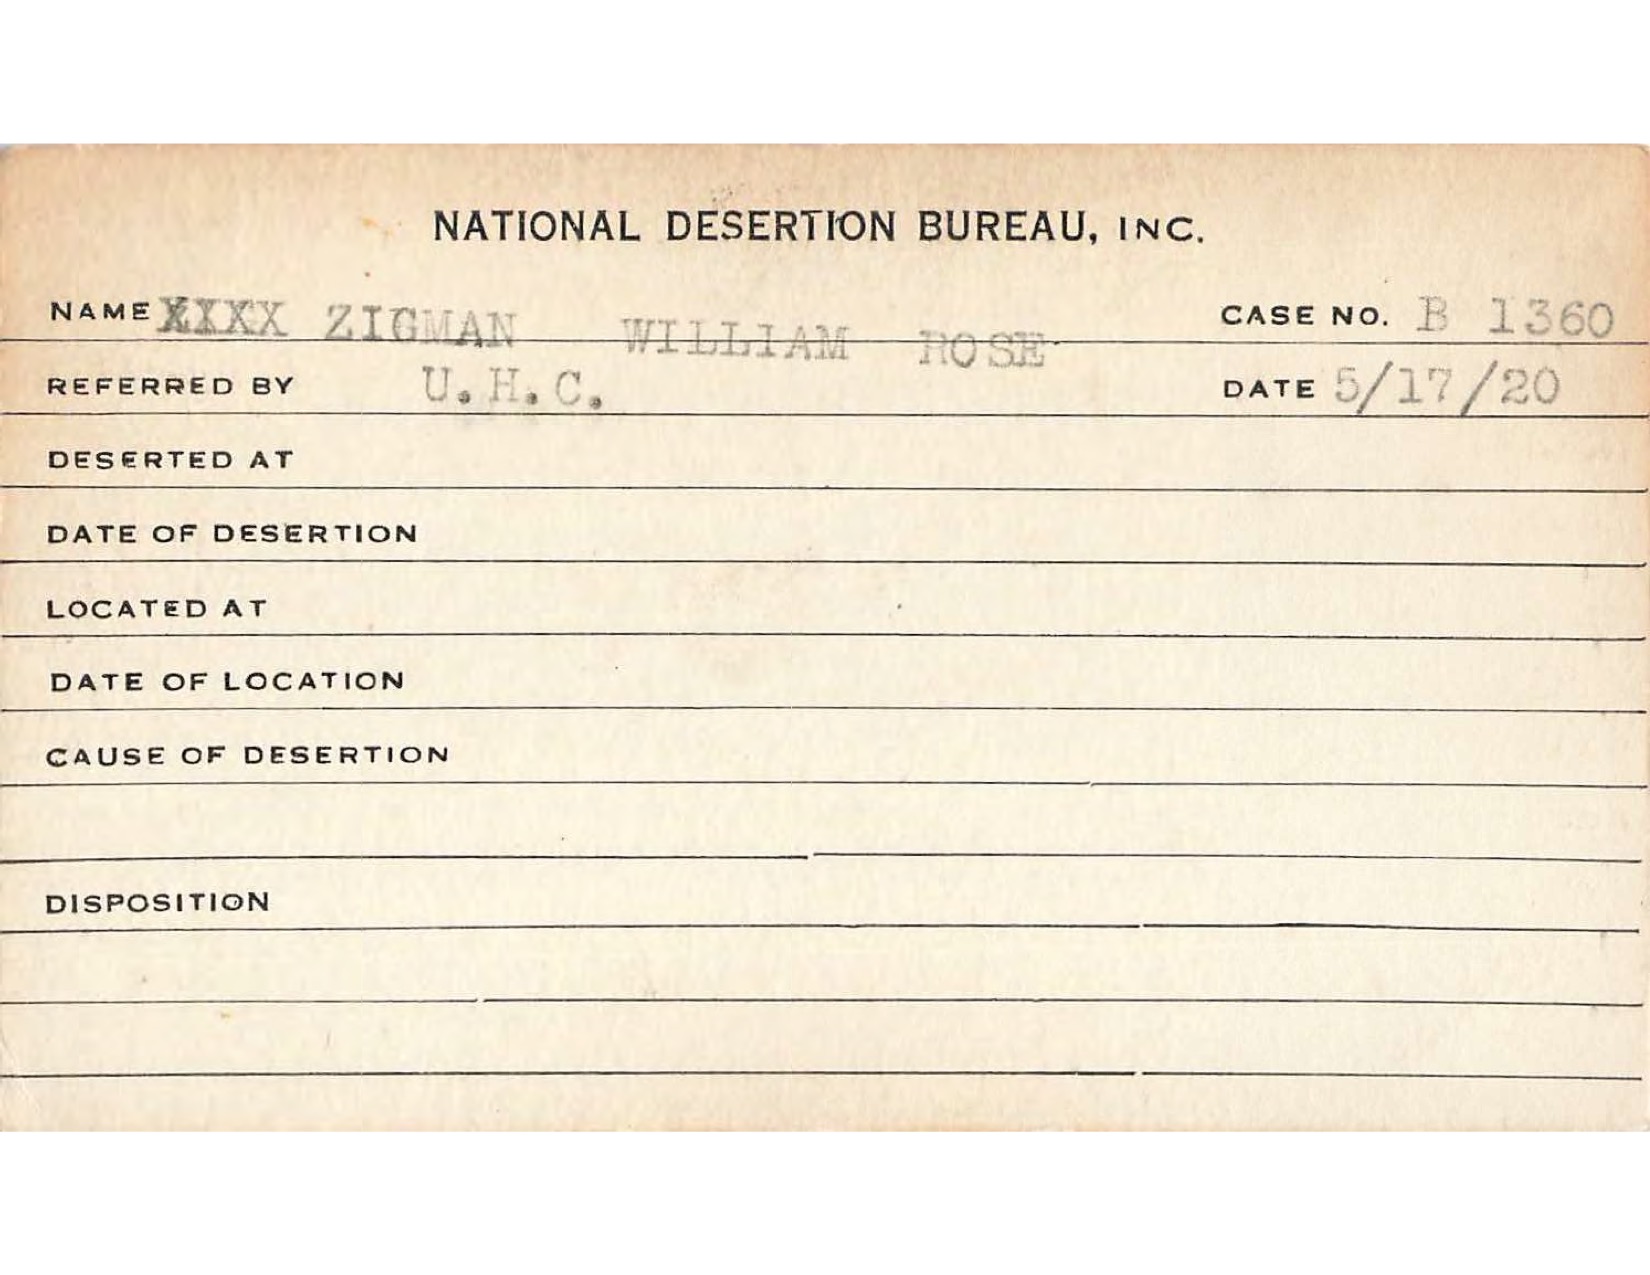 NATIONAL DESERTION BUREAU, INC.
NAME XXXX ZIGMAN WILLIAM ROSE CASE NO. B 1360
REFERRED BY U.H.C. DATE 5/17/20
DESERTED AT
DATE OF DESERTION
LOCATED AT
DATE OF LOCATION
CAUSE OF DESERTION
DISPOSITION